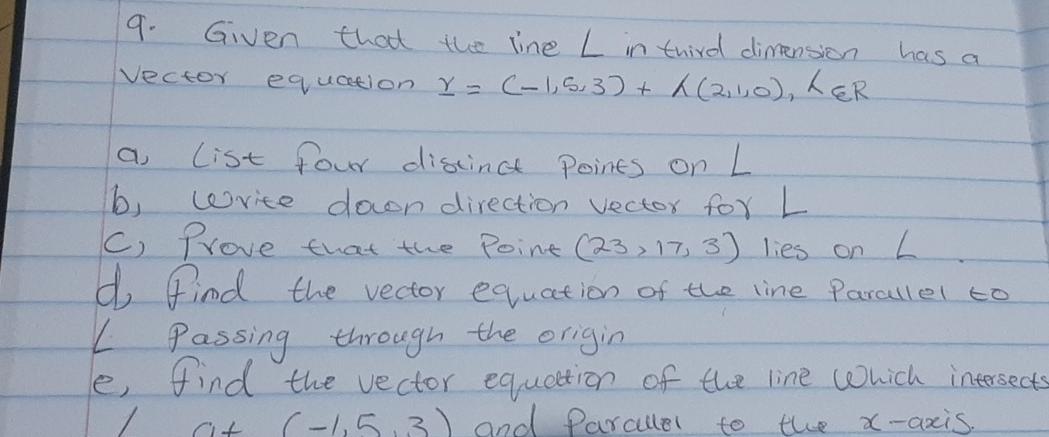 9. Given that the line L in third dimension has a
vector equation r = (-1,5,3) + λ(2,1,0), λ∈R
a, List four distinct Points on L
b, Write down direction vector for L
c, Prove that the Point (23,17,3) lies on L.
d, find the vector equation of the line Parallel to
L Passing through the origin
e, find the vector equation of the line which intersects
L at (-1,5,3) and Parallel to the x-axis.